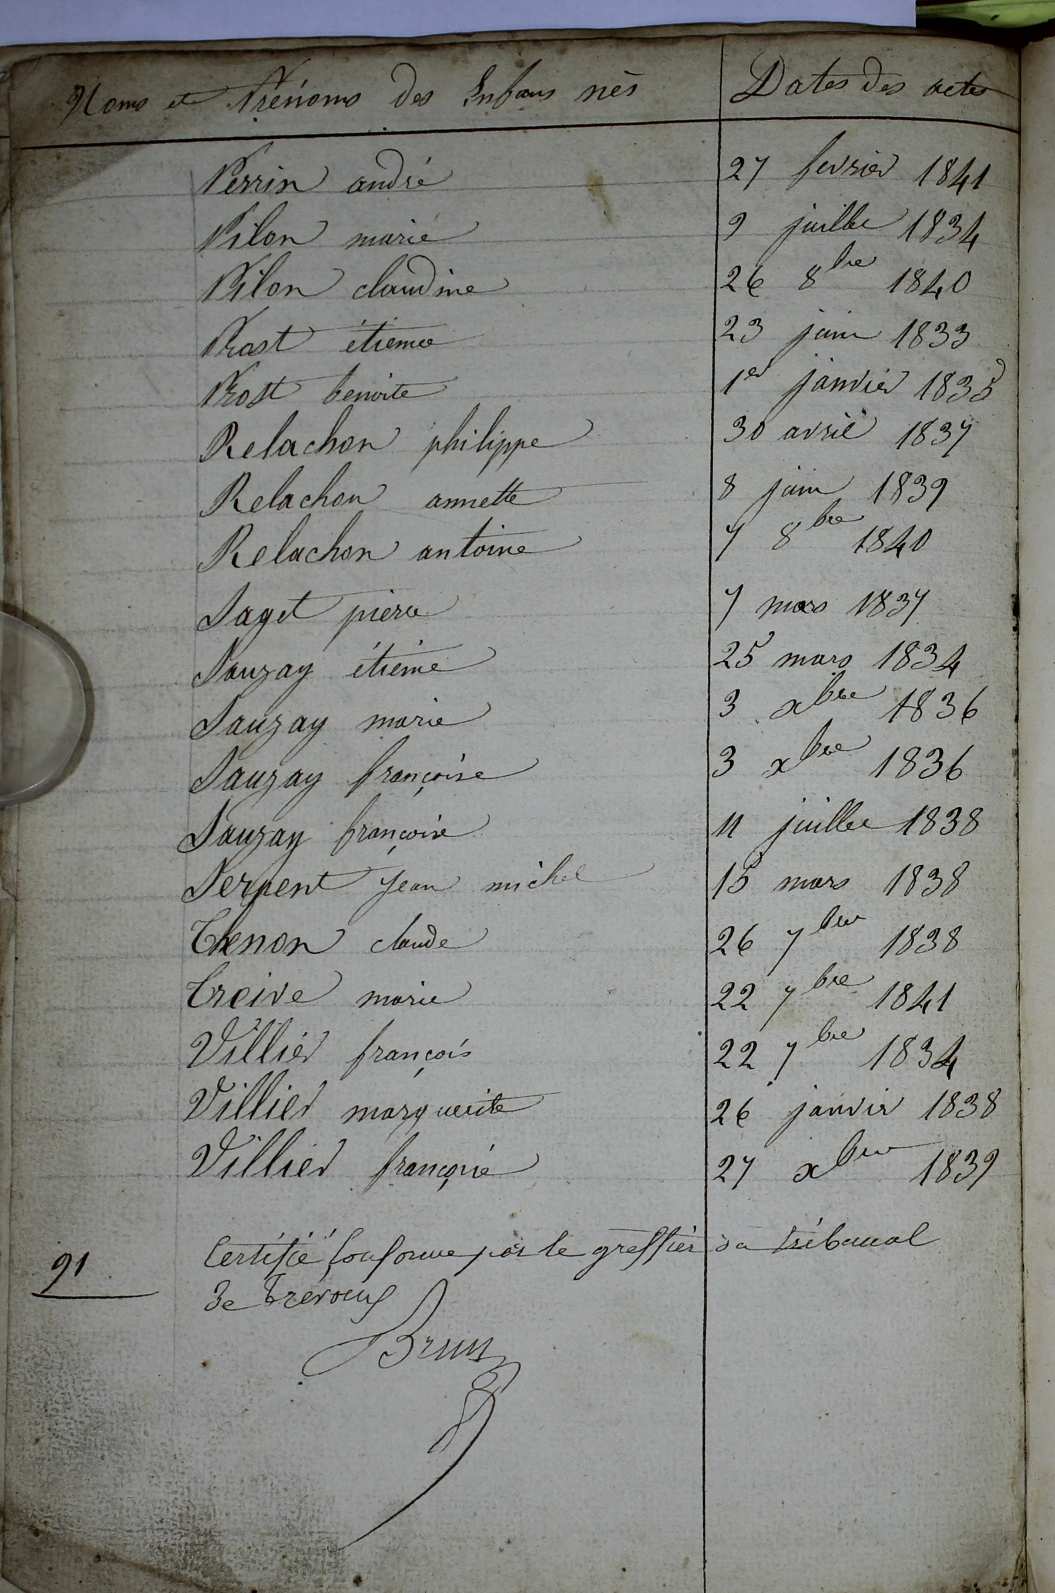 Noms et Prénoms des Enfans nés Dates des actes
Perrin andré 27 fevrier 1841
Pilon marie 9 juillet 1834
Pilon claudine 26 8bre 1840
Prost étienne 23 juin 1833
Prost benoite 1er janvier 1835
Relachon philippe 30 avril 1837
Relachon annette 8 juin 1839
Relachon antoine 7 8bre 1840
Saget pierre 7 mars 1837
Sauzay étiene 25 mars 1834
Sauzay marie 3 xbre 1836
Sauzay françoise 3 xbre 1836
Sauzay françoise 11 juillet 1838
Serpent jean michel 15 mars 1838
Thenon claude 26 7bre 1838
Treive marie 22 7bre 1841
Villier françois 22 7bre 1834
Villier marguerite 26 janvir 1838
Villier françoise 27 xbre 1839
Certifié conforme par le greffier du tribunal
91
de trevoux
Brun